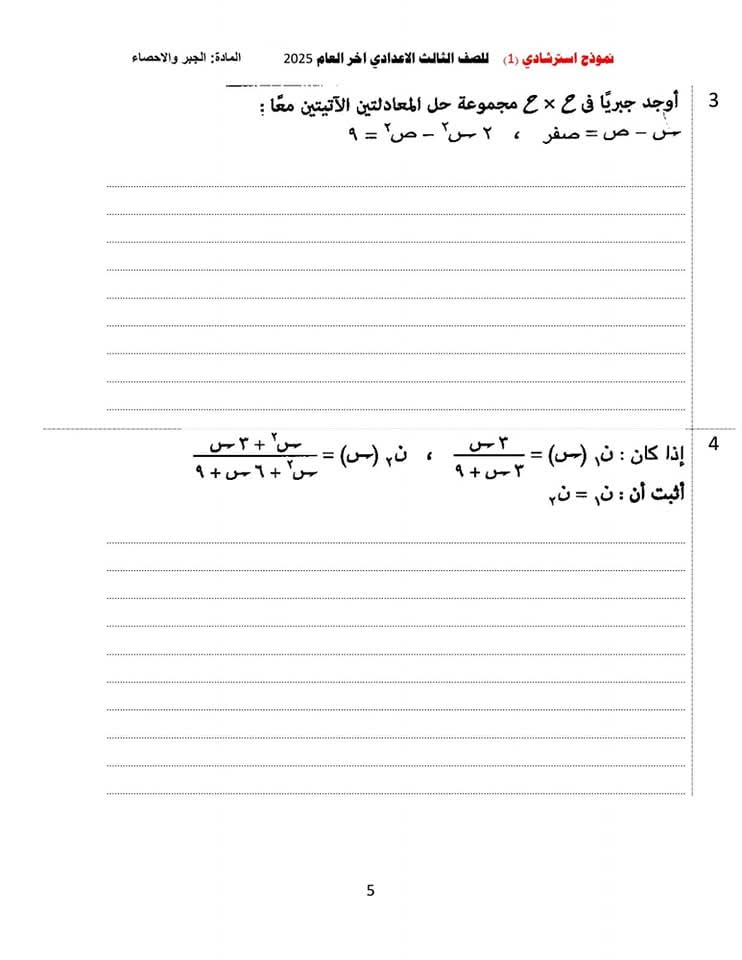 نموذج استرشادي (1) للصف الثالث الاعدادي اخر العام 2025 المادة: الجبر والاحصاء
3 أوجد جبريًا فى ح × ح مجموعة حل المعادلتين الآتيتين معًا :
س – ص = صفر ، ٢ س٢ – ص٢ = ٩
4 إذا كان : ن١ (س) = ٣ س / ٣ س + ٩ ، ن٢ (س) = س٢ + ٣ س / س٢ + ٦ س + ٩
أثبت أن : ن١ = ن٢
5